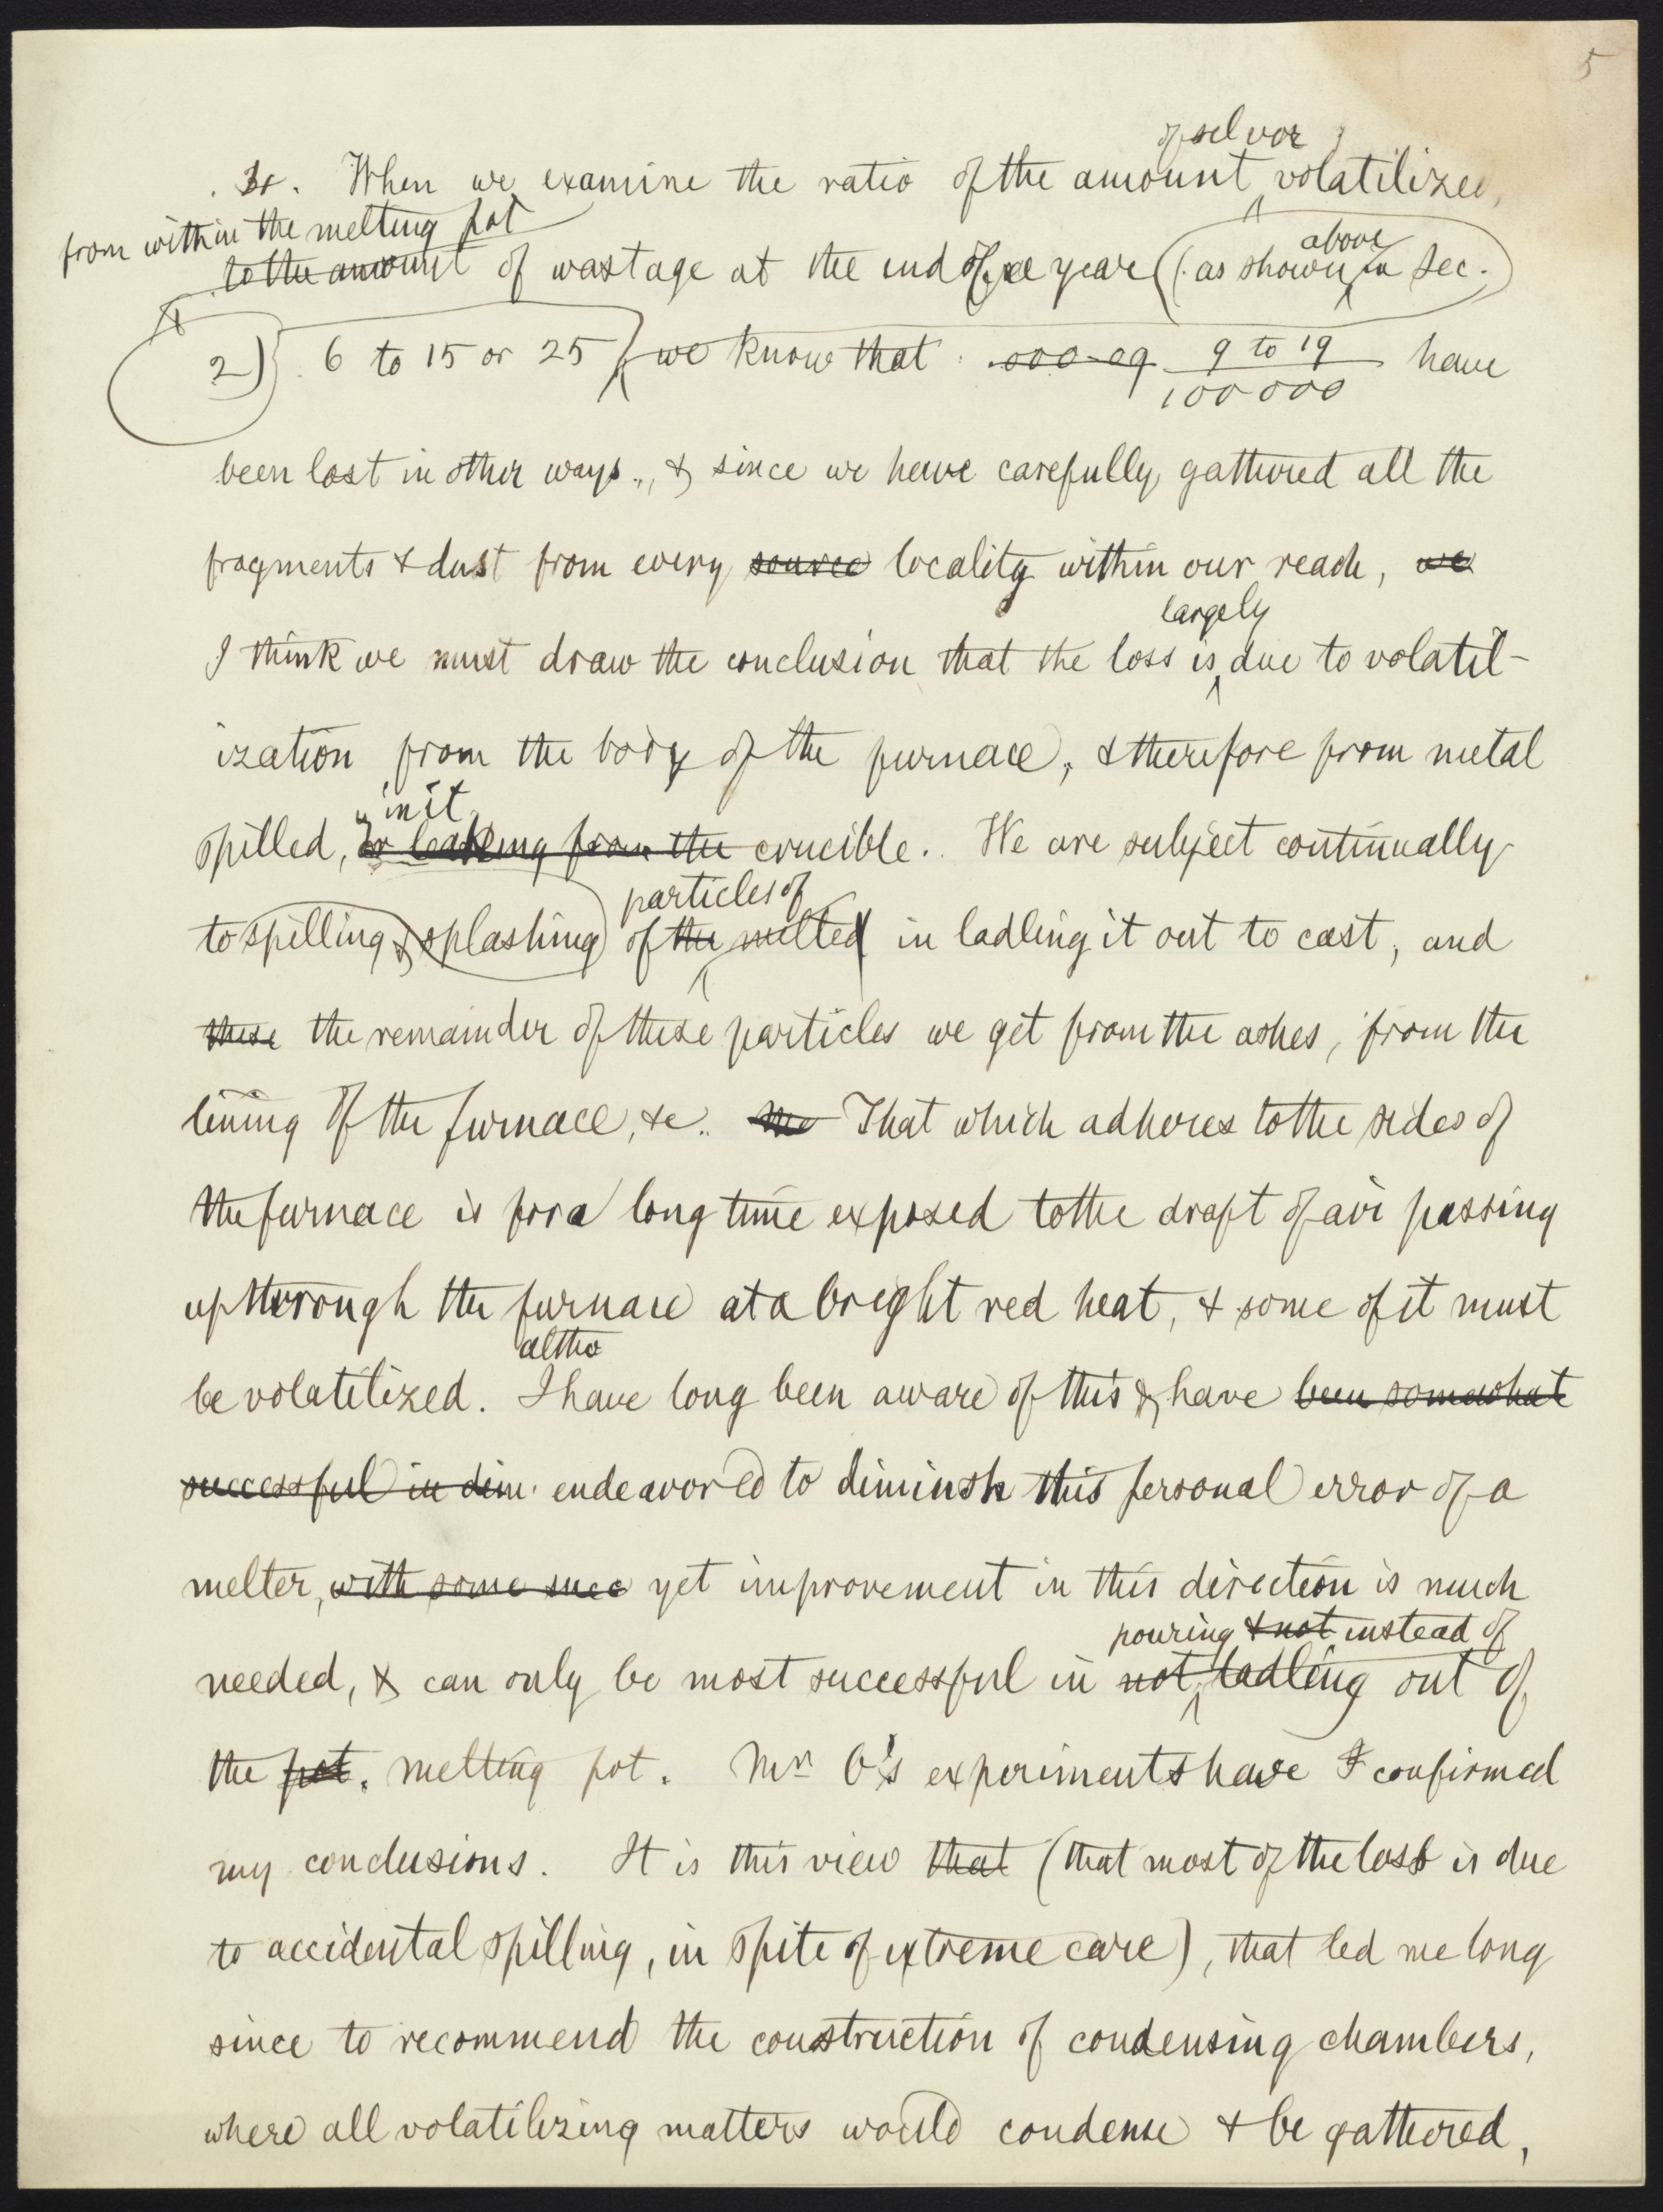 5
of silver
3. When we examine the ratio of the amount volatilized,
from within the melting pot
to the amount of wastage at the end of the year (as shown in Sec.
above
2) 6 to 15 or 25 we know that .000 09 9 to 19 have
100 000
been lost in other ways, & since we have carefully gathered all the
fragments & dust from every source locality within our reach, we
largely
I think we must draw the conclusion that the loss is due to volatil-
ization from the body of the furnace, & therefore from metal
in it
spilled, or leaking from the crucible. We are subject continually
particles of
to spilling & splashing of the melted in ladling it out to cast, and
these the remainder of these particles we get from the ashes, from the
lining of the furnace, &c. That which adheres to the sides of
the furnace is for a long time exposed to the draft of air passing
up through the furnace at a bright red heat, & some of it must
altho
be volatilized. I have long been aware of this & have been somewhat
successful in dim. endeavored to diminsh this personal error of a
melter, with some succ yet improvement in this direction is much
pouring & not instead of
needed, & can only be most successful in not ladling out of
the pot. melting pot. Mr. O's experiments have confirmed
my conclusions. It is this view that (that most of the loss is due
to accidental spilling, in spite of extreme care), that led me long
since to recommend the construction of condensing chambers,
where all volatilizing matters would condense & be gathered,